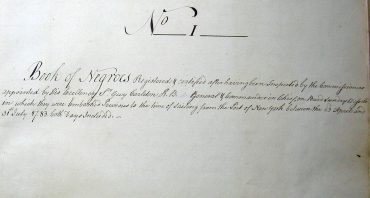 No 1
Book of Negroes Registered & certified after having been Inspected by the Commissioners
appointed by His Excellency Sr. Guy Carleton K.B. General & Commander in Chief, on Board Sundry Vessels
in which they were embarked Previous to the time of sailing from the Port of New York between the 23 April and
31st July 1783 both days Included.